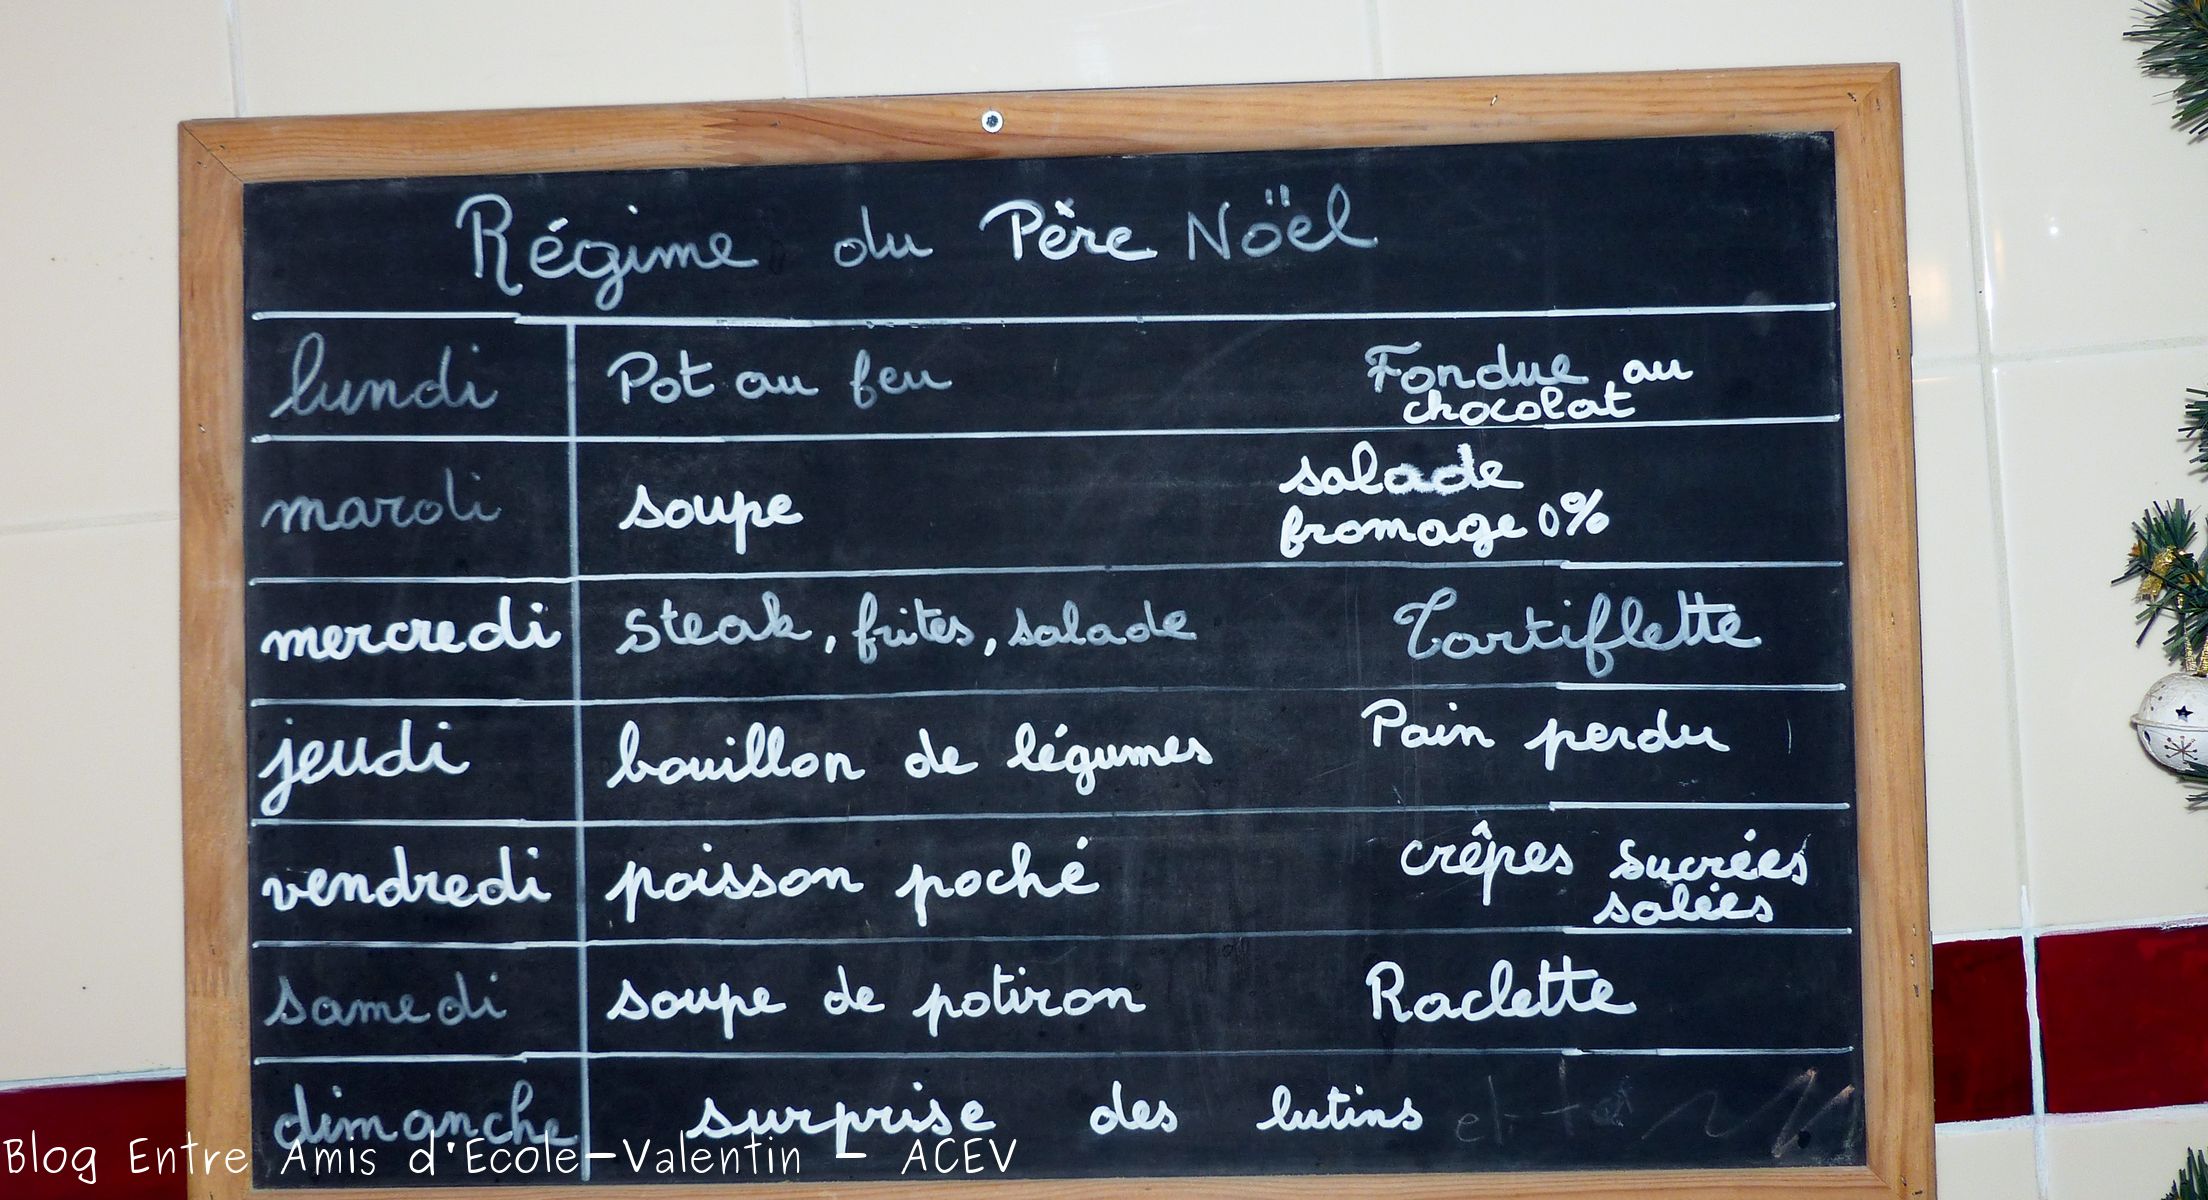 Régime du Père Noël
lundi Pot au feu Fondue au
chocolat
mardi soupe salade
fromage 0%
mercredi Steak, frites, salade Tartiflette
jeudi bouillon de légumes Pain perdu
vendredi poisson poché crêpes sucrées
salées
samedi soupe de potiron Raclette
dimanche surprise des lutins
Blog Entre Amis d'Ecole-Valentin - ACEV